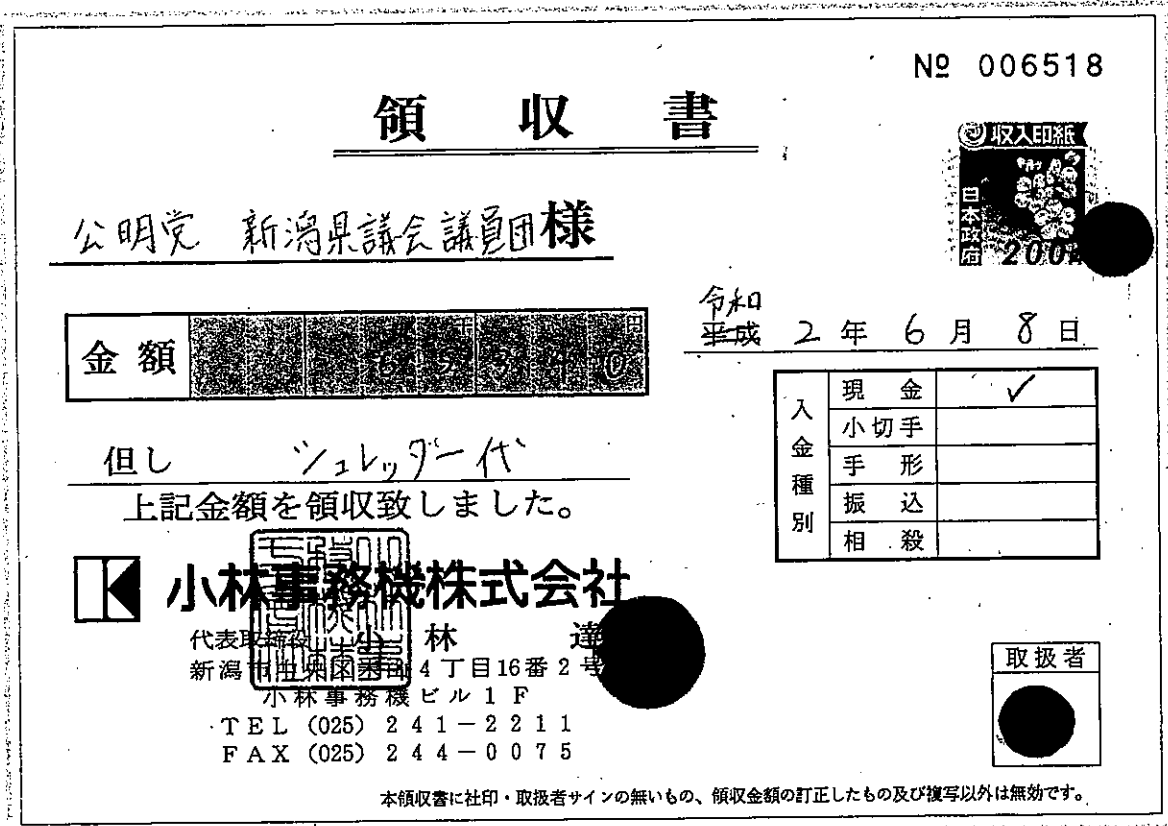 № 006518
領収書
収入印紙
日本政府
200
公明党 新潟県議会議員団様
令和
平成 2年 6月 8日
金額
千 円
入金種別
現金 ✓
小切手
手形
振込
相殺
但し シュレッダー代
上記金額を領収致しました。
小林事務機株式会社
代表取締役 小林 達
新潟市中央区 4丁目16番2号
小林事務機ビル1F
TEL (025) 241-2211
FAX (025) 244-0075
取扱者
本領収書に社印・取扱者サインの無いもの、領収金額の訂正したもの及び複写以外は無効です。